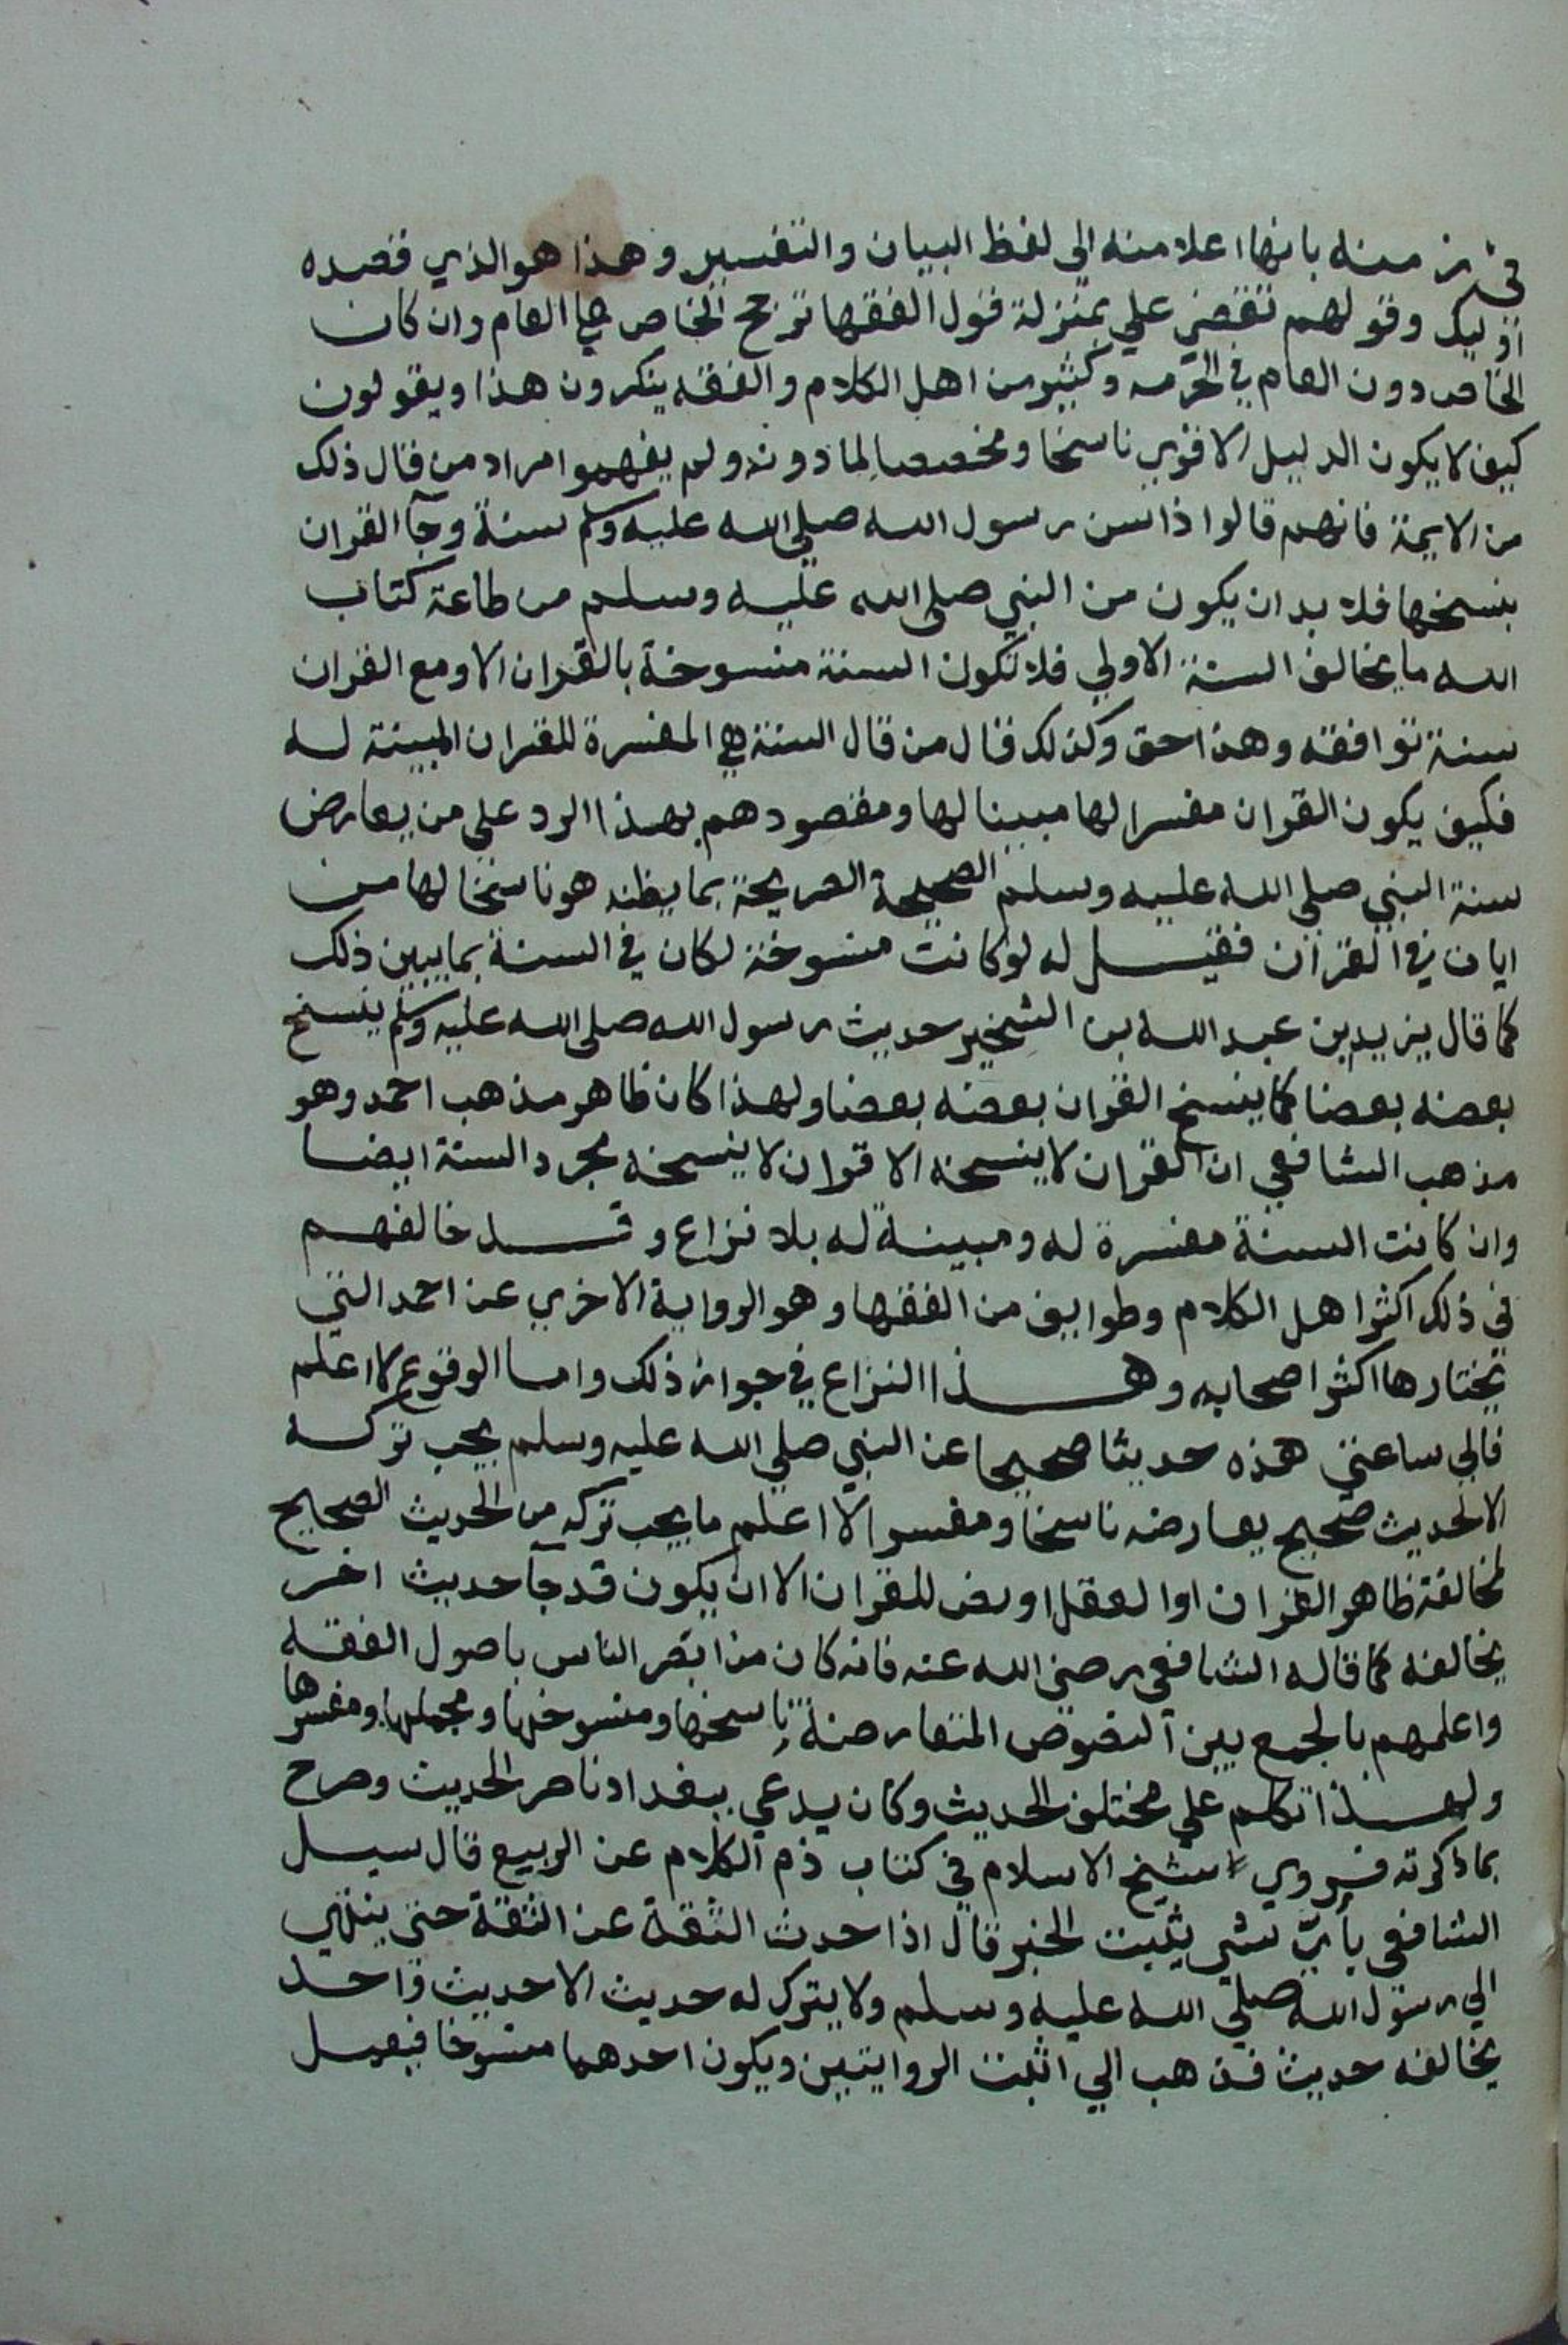 منه بانها اعلا منه الى لفظ البيان والتفسير وهذا هو الذي قصده
اوليك وقولهم تقضي علي بمنزلة قول الفقها ترجح الخاص على العام وان كان
الخاص دون العام في الحرمه وكثير من اهل الكلام والفقه ينكرون هذا ويقولون
كيف لا يكون الدليل الاقوي ناسخا ومخصصا لما دونه ولم يفهموا مراد من قال ذلك
من الايمة فانهم قالوا اذا سن رسول الله صلي الله عليه وسلم سنة وجآ القران
بنسخها فلا بد ان يكون من النبي صلي الله عليه وسلم من طاعة كتاب
الله ما يخالف السنة الاولي فلا تكون السنة منسوخة بالقران الا ومع القران
سنة توافقه وهذا حق وكذلك قال من قال السنة هي المفسرة للقران المبينة له
فكيف يكون القران مفسرا لها مبينا لها ومقصودهم بهذا الرد علي من يعارض
سنة النبي صلي الله عليه وسلم الصحيحة الصريحة بما يظنه هو ناسخا لها من
ايات في القران فقيل له لو كانت منسوخة لكان في السنة بما يبين ذلك
كما قال يزيد بن عبد الله بن الشخير حديث رسول الله صلى الله عليه وسلم ينسخ
بعضه بعضا كما ينسخ القران بعضه بعضا ولهذا كان ظاهر مذهب احمد وهو
مذهب الشافعي ان القران لا ينسخه الا قران لا ينسخه مجرد السنة ايضا
وان كانت السنة مفسرة له ومبينة له بلا نزاع وقد خالفهم
في ذلك اكثر اهل الكلام وطوايف من الفقها وهو الرواية الاخري عن احمد التي
يختارها اكثر اصحابه وهذا النزاع في جواز ذلك واما الوقوع لا اعلم
فالي ساعتي هذه حديثا صحيحا عن النبي صلي الله عليه وسلم يجب تركه
الا لحديث صحيح يعارضه ناسخا ومفسرا لا اعلم ما يجب تركه من الحديث الصحيح
لمخالفة ظاهر القران او العقل او نص للقران الا ان يكون قد جآ حديث اخر
يخالفه كما قاله الشافعي رضي الله عنه فانه كان من ابصر الناس باصول الفقه
واعلمهم بالجمع بين النصوص المتعارضة ناسخها ومنسوخها ومجملها ومفسرها
ولهذا تكلم علي مختلف الحديث وكان يدعي ببغداد ناصر الحديث وصرح
بما ذكرته فروي شيخ الاسلام في كتاب ذم الكلام عن الربيع قال سيل
الشافعي بأيّ شي يثبت الخبر قال اذا حدث الثقة عن الثقة حتى ينتهي
الي رسول الله صلي الله عليه وسلم ولا يترك له حديث الا حديث واحد
يخالفه حديث فذهب الي اثبت الروايتين ويكون احدهما منسوخا فيعمل